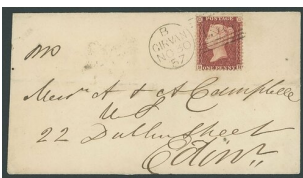 B
GIRVAN
NO 30
57
POSTAGE
ONE PENNY
Messrs A & A Campbell
WS
22 Dublin Street
Edinr